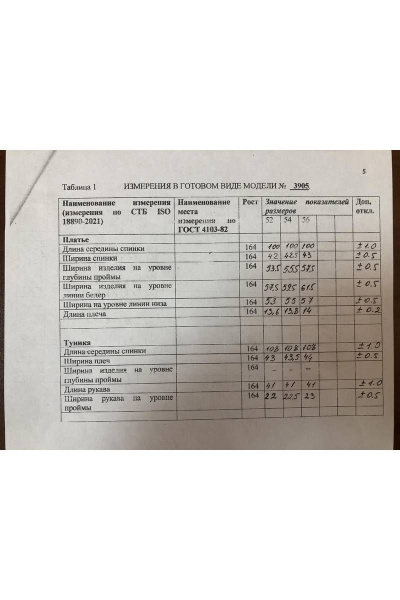 5
Таблица 1 ИЗМЕРЕНИЯ В ГОТОВОМ ВИДЕ МОДЕЛИ № 3905
Наименование измерения (измерения по СТБ ISO 18890-2021) Наименование места измерения по ГОСТ 4103-82 Рост Значение показателей размеров Доп. откл.
52 54 56
Платье
Длина середины спинки 164 100 100 100 ± 1.0
Ширина спинки 164 42 42,5 43 ± 0.5
Ширина изделия на уровне глубины проймы 164 53,5 55,5 57,5 ± 0.5
Ширина изделия на уровне линии бедер 164 57,5 59,5 61,5 ± 0.5
Ширина на уровне линии низа 164 53 55 57 ± 0.5
Длина плеча 164 13,6 13,8 14 ± 0.2
Туника
Длина середины спинки 164 108 108 108 ± 1.0
Ширина плеч 164 43 43,5 44 ± 0.5
Ширина изделия на уровне глубины проймы 164 - - -
Длина рукава 164 41 41 41 ± 1.0
Ширина рукава на уровне проймы 164 22 22,5 23 ± 0.5